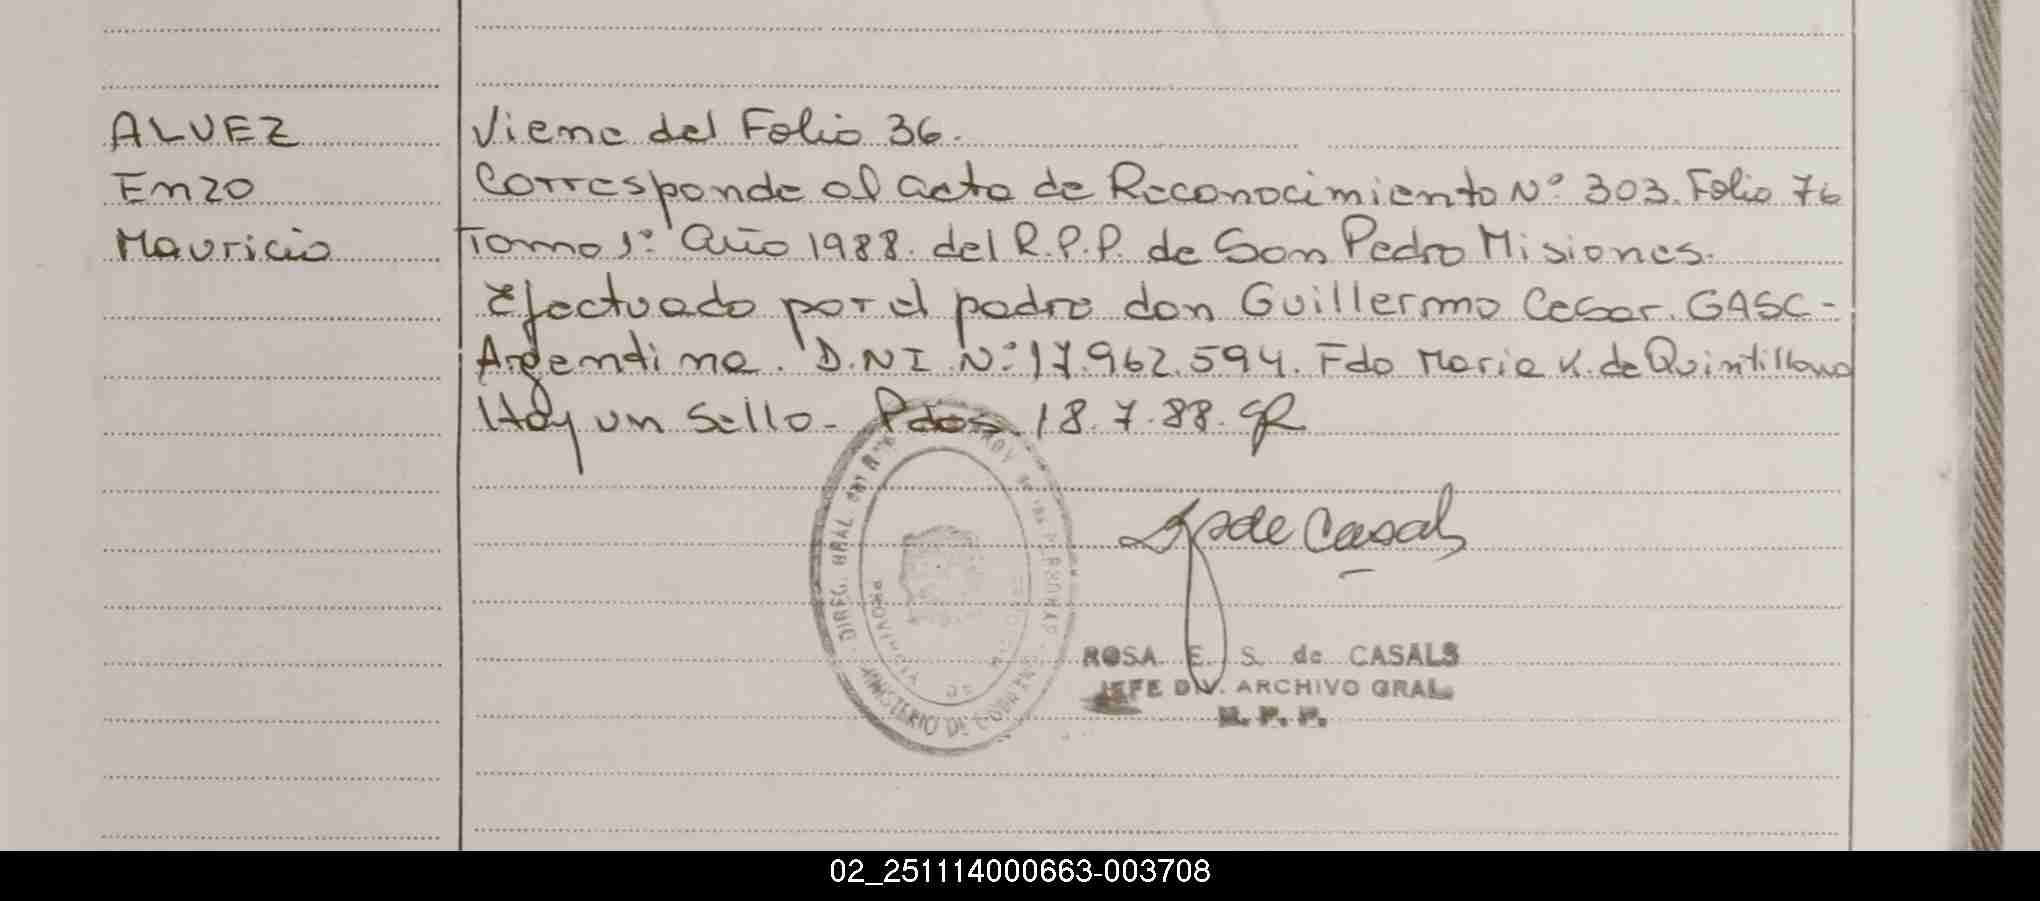 ALVEZ
Enzo
Mauricio
Viene del Folio 36.
Corresponde al acta de Reconocimiento Nº 303. Folio 76
Tomo 1º Año 1988. del R.P.P. de San Pedro Misiones.
Efectuado por el padre don Guillermo Cesar. GASC-
Argentina. D.N.I. Nº 17.962.594. Fdo Maria K. de Quintillana
Hay un Sello - Pdas. 18.7.88.
de Casals
DIREC. GRAL. del
PROVINCIA DE
MINISTERIO DE GOBIERNO
ROSA E. S. de CASALS
JEFE DIV. ARCHIVO GRAL.
R. P. P.
02_251114000663-003708